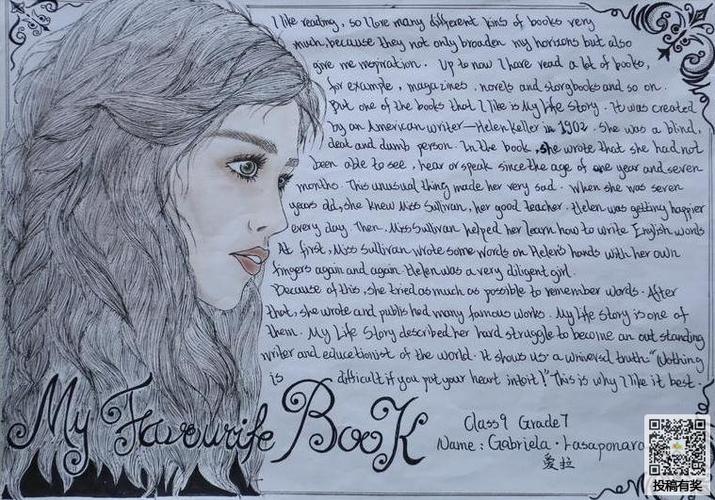 I like reading, so I love many different kins of books very
much, because they not only broaden my horizons but also
give me inspiration. Up to now I have read a lot of books,
for example, magazines, novels and storybooks and so on.
But one of the books that I like is My Life Story. It was created
by an American writer—Helen Keller in 1902. She was a blind,
deaf and dumb person. In the book, she wrote that she had not
been able to see, hear or speak since the age of one year and seven
months. This unusual thing made her very sad. When she was seven
years old, she knew Miss Sullivan, her good teacher. Helen was getting happier
every day. Then, Miss Sullivan helped her learn how to write English words
At first, Miss Sullivan wrote some words on Helen's hands with her own
fingers again and again. Helen was a very diligent girl.
Because of this, she tried as much as possible to remember words. After
that, she wrote and published many famous works. My Life Story is one of
them. My Life Story described her hard struggle to become an out standing
writer and educetionist of the world. It shows us a universal truth: "Nothing
is difficult if you put your heart into it!" This is why I like it best.
My Favourite Book
Class9 Grade7
Name: Gabriela · Lasaponara
爱拉
投稿有奖